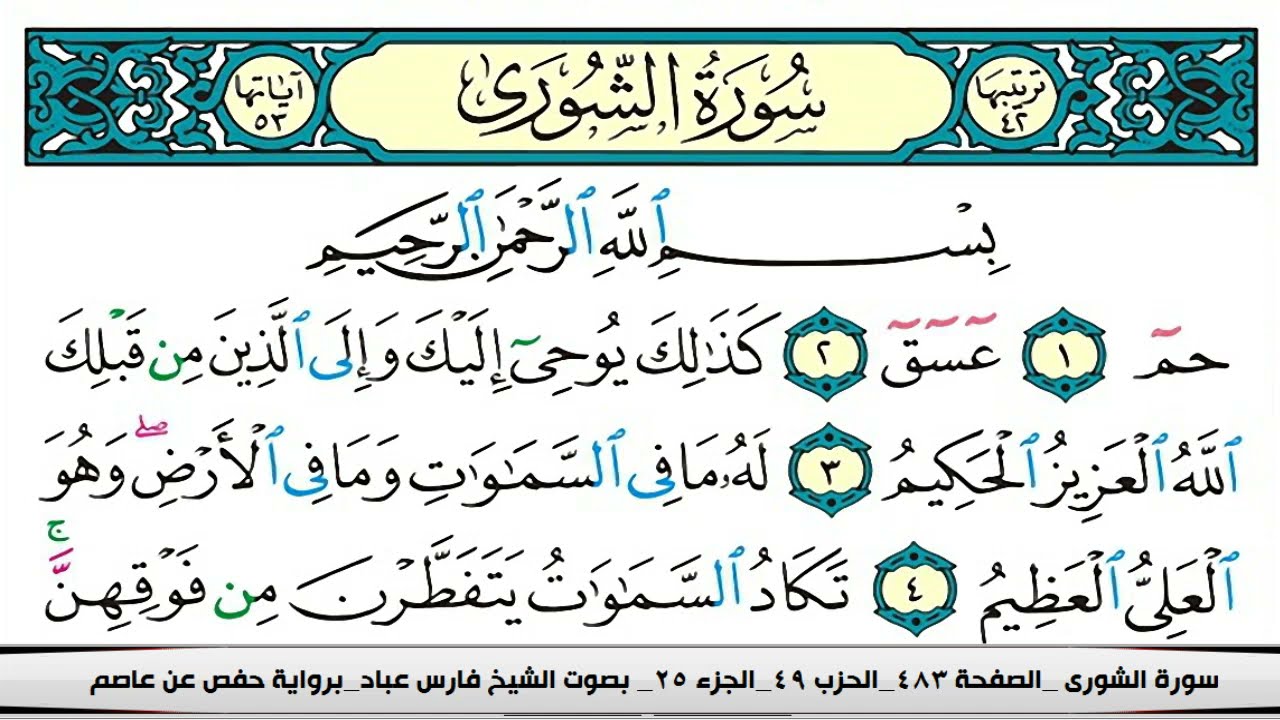 ترتيبها ٤٢
سُورَةُ الشُّورَىٰ
آياتها ٥٣
بِسْمِ ٱللَّهِ ٱلرَّحْمَٰنِ ٱلرَّحِيمِ
حمٓ ١ عٓسٓقٓ ٢ كَذَٰلِكَ يُوحِىٓ إِلَيْكَ وَإِلَى ٱلَّذِينَ مِن قَبْلِكَ
ٱللَّهُ ٱلْعَزِيزُ ٱلْحَكِيمُ ٣ لَهُۥ مَا فِى ٱلسَّمَٰوَٰتِ وَمَا فِى ٱلْأَرْضِ ۖ وَهُوَ
ٱلْعَلِىُّ ٱلْعَظِيمُ ٤ تَكَادُ ٱلسَّمَٰوَٰتُ يَتَفَطَّرْنَ مِن فَوْقِهِنَّ ۚ
سورة الشورى _الصفحة ٤٨٣_الحزب ٤٩_الجزء ٢٥_ بصوت الشيخ فارس عباد_برواية حفص عن عاصم